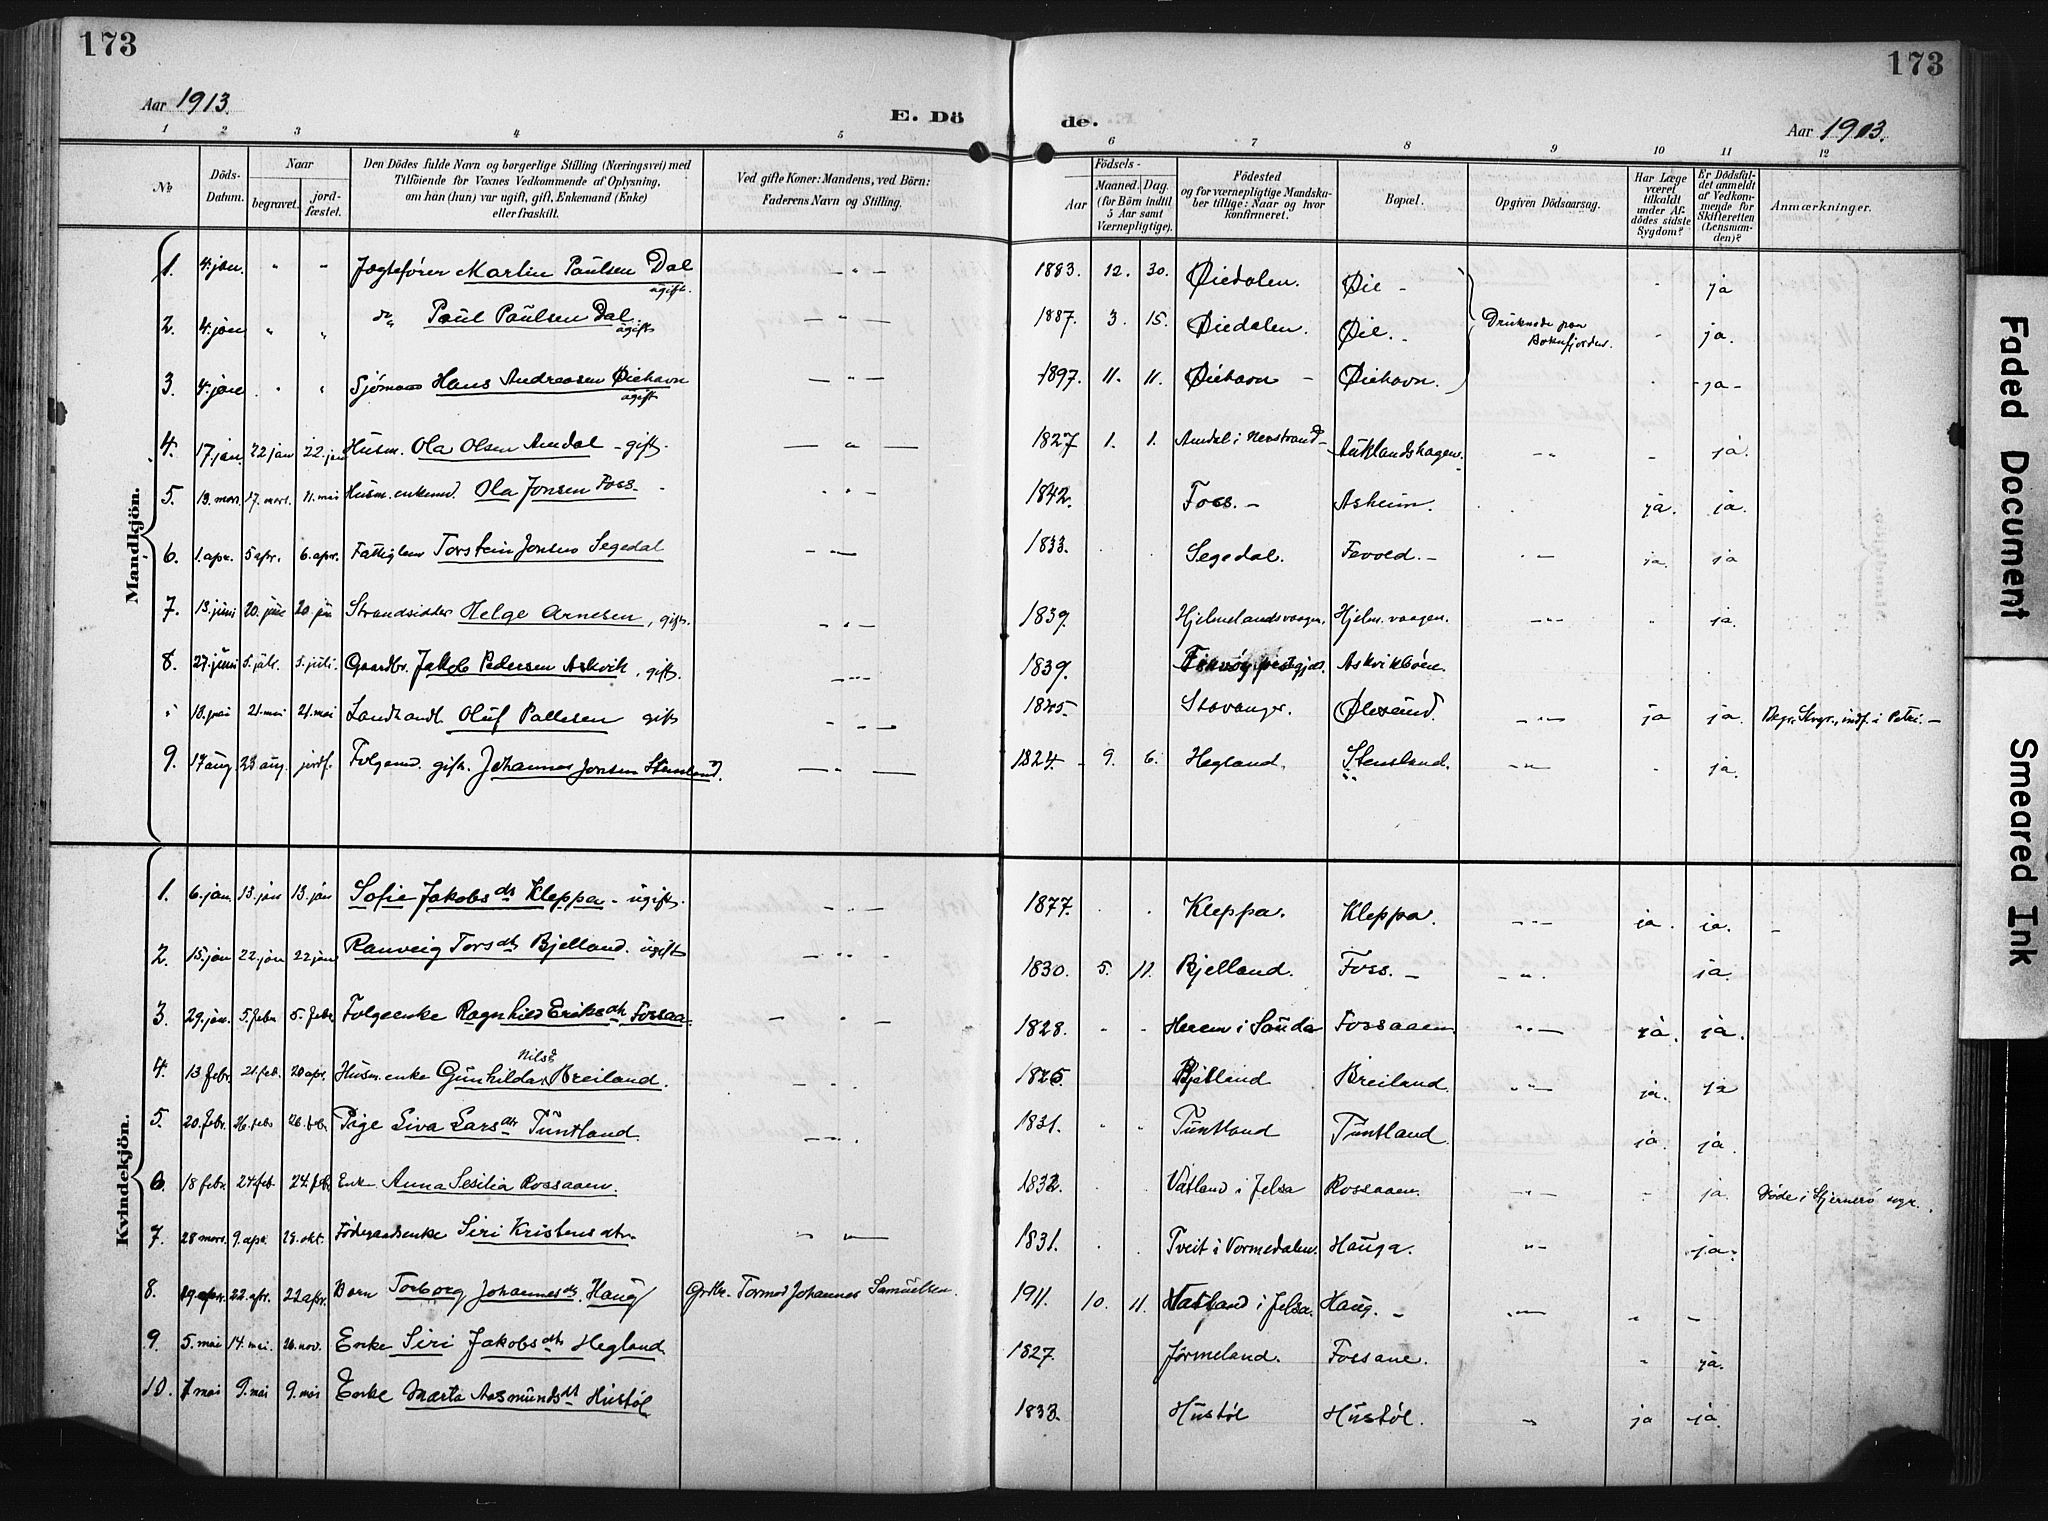 173
173
Aar 1913.
E. Dö de.
Aar 1913.
1 2 3 4 5 6 7 8 9 10 11 12
No
Döds-Datum.
Naar
begravet.
jord-fæstet.
Den Dödes fulde Navn og borgerlige Stilling (Næringsvei) med
Tilföiende for Voxnes Vedkommende af Oplysning,
om han (hun) var ugift, gift, Enkemand (Enke)
eller fraskilt.
Ved gifte Koner: Mandens, ved Börn:
Faderens Navn og Stilling.
Födsels-
Aar
Maaned.
Dag.
(for Börn indtil
5 Aar samt
Værnepligtige).
Födested
og for værnepligtige Mandska-
ber tillige: Naar og hvor
konfirmeret.
Bopæl.
Opgiven Dödsaarsag.
Har Læge
været
tilkaldt
under Af-
dödes sidste
Sygdom?
Er Dödsfal-
det anmeldt
af Vedkom-
mende for
Skifteretten
(Lensman-
den)?
Anmærkninger.
Mandkjön.
1. 4. jan. " " Jægtefører Martin Paulsen Dal ugift. — " — 1883. 12. 30. Øiedalen. Øie - " ja
2. 4. jan " " do Paul Paulsen Dal. ugift — " — 1887. 3. 15. Øiedalen. Øie. - Druknede paa Boknfjorden. " ja.
3. 4. jan " " Sjømand Hans Andreasen Øiehavn ugift — " — 1897. 11. 11. Øiehavn - Øiehavn. " -ja-
4. 17. jan. 22 jan 22. jan Husm. Ola Olsen Amdal - gift. — " — 1827 1. 1. Amdal i Nerstrand - Auklandshagen. - " - - ja.
5. 13. mars. 17. mars. 11. mai Husm. enkemd. Ola Jonsen Foss - " " " 1842. Foss. - Asheim. ja. ja.
6. 1. apr. 5 apr. 6. apr. Fattiglem Torstein Jonsen Segedal - " — 1833. Segedal. Fevold. - " — ja. ja
7. 13. juni 20. juni 20. jun Strandsidder Helge Arnesen, gift. - " - 1839. Hjelmelandsvaagen. Hjelm. vaagen. - " - " ja.
8. 27. juni 5. juli. 5. juli. Gaardbr. Jakob Pedersen Askvik, gift. - " - 1839. Askvikbøen.
" 18. mai 21. mai 21. mai Landhandl. Oluf Pallesen gift - " — 1845. Stavanger. Ølesund. - " — ja ja.
9. 17 aug. 23 aug. jordf. Folgemd. gift. Johannes Jonsen Stensland. — " — 1824. 9. 6. Hegland. Stensland. - " - " ja.
Kvindekjön.
1. 6. jan. 13. jan 13. jan Sofie Jakobsdtr Kleppa - ugift. - " - 1877. Kleppa. Kleppa. - " - ja. ja. -
2. 15. jan 22. jan 22 jan Ranveig Torsdtr Bjelland. ugift - " " - 1830. 5. 11. Bjelland. Foss. - - " - ja.
3. 29. jan. 5. febr 5. febr Folgeenke Ragnhild Eriksdtr Fossaa. - " - 1828. " " Herem i Sauda Fossaaen. " " — ja. ja.
4. 13 febr. 21. feb. 20 apr. Husm. enke Gunhilda Nilsd Breiland. - " - 1825. Bjelland Breiland. " " - ja. ja
5. 20. febr. 26. febr 26. feb. Pige Siva Larsdtr Tuntland. - " - 1831. " " Tuntland Tuntland. - " - ja. ja.
6. 18 febr. 24. feb. 24. feb Enke Anna Sesilia Rossaaen. 1832. Vatland i Jelsa Rossaaen. - " - " ja. Døde i Sjernerø sogn.
7. 28 mars. 9. apr. 29. okt. Føderaadsenke Siri Kristensdtr. " " — 1831. Tveit i Vormedalen. Hauga. " - ja.
8. 19 apr. 22. apr. 22 apr. Barn Torborg Johannesdtr. Haug Grdbr. Tormod Johannes Samuelsen. 1911. 10. 11. Vatland i Jelsa. Haug. - - " — " -
9. 5. mai 14. mai. 26. nov. Enke Siri Jakobsdtr Hegland 1827. Jørmeland. Fossane. " ja.
10. 7. mai 9. mai 9. mai Enke Marta Aasmundsdt Hustøl 1833. Hustøl Hustøl. " ja ja.
Faded Document
Smeared Ink